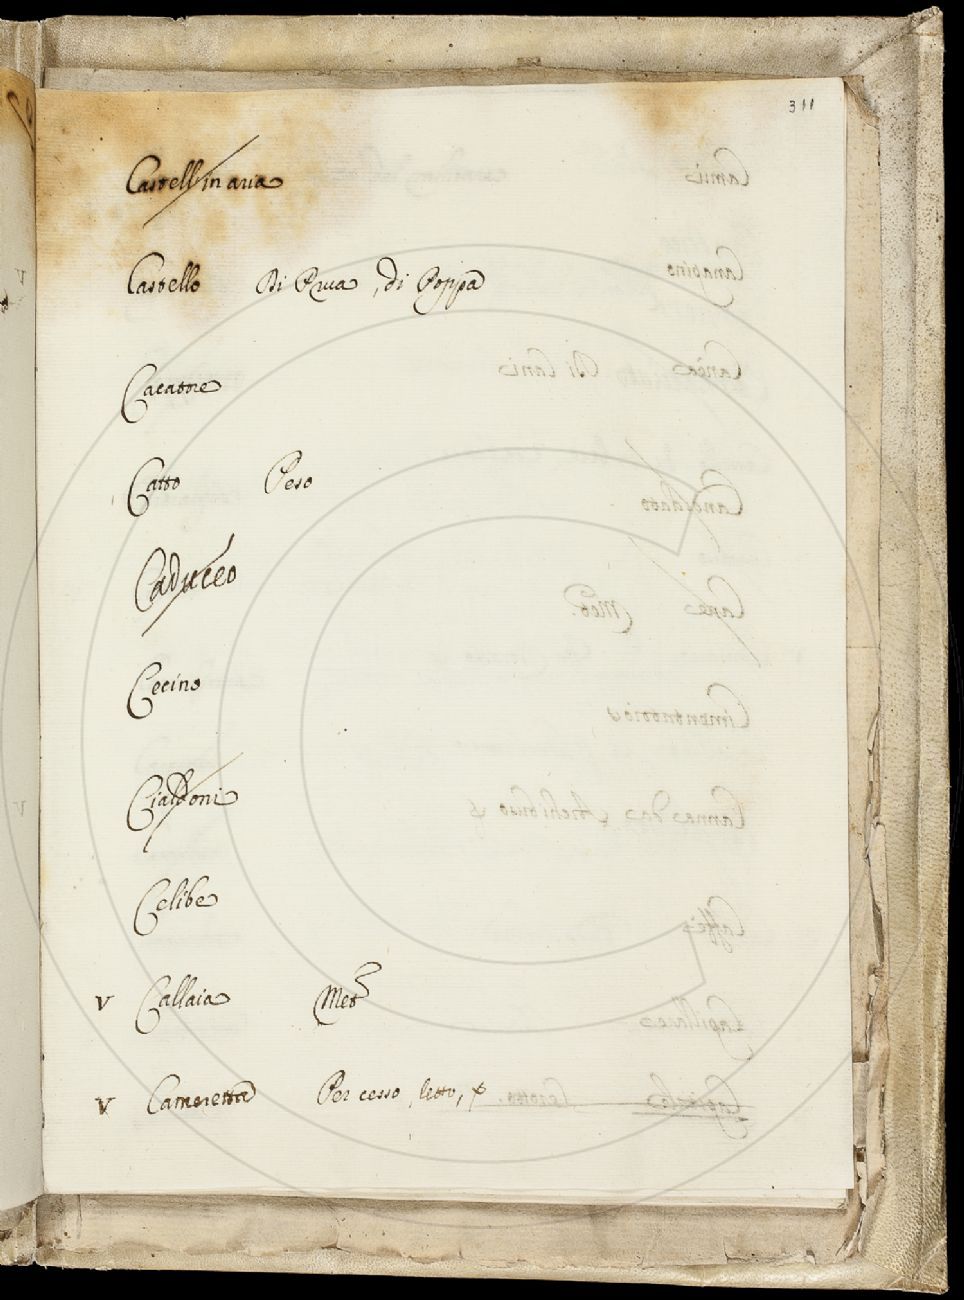 311
Castell in aria
Castello Di Prua, di Poppa
Cacatore
Catto Peso
Caduceo
Cecino
Cialdoni
Celibe
v Callaia Met
v Cameretta Per cesso, letto,